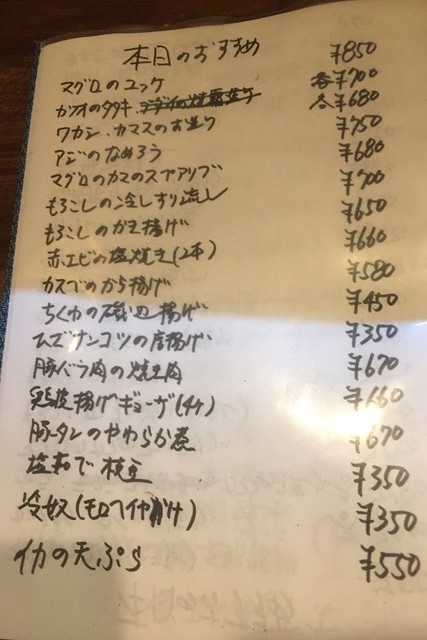 本日のおすすめ
マグロのユッケ ¥850
カツオのタタキ、 各¥700
ワカシ、カマスのお造り 各¥680
アジのなめろう ¥750
マグロのカマのスペアリブ ¥680
もろこしの冷しすり流し ¥700
もろこしのかき揚げ ¥650
赤エビの塩焼き(2本) ¥660
カスベのから揚げ ¥580
ちくわの磯辺揚げ ¥450
ひざナンコツの唐揚げ ¥350
豚バラ肉の焼肉 ¥670
鶏皮揚げギョーザ(4ケ) ¥660
豚タンのやわらか煮 ¥670
塩ゆで枝豆 ¥350
冷奴(モロヘイヤがけ) ¥350
イカの天ぷら ¥550